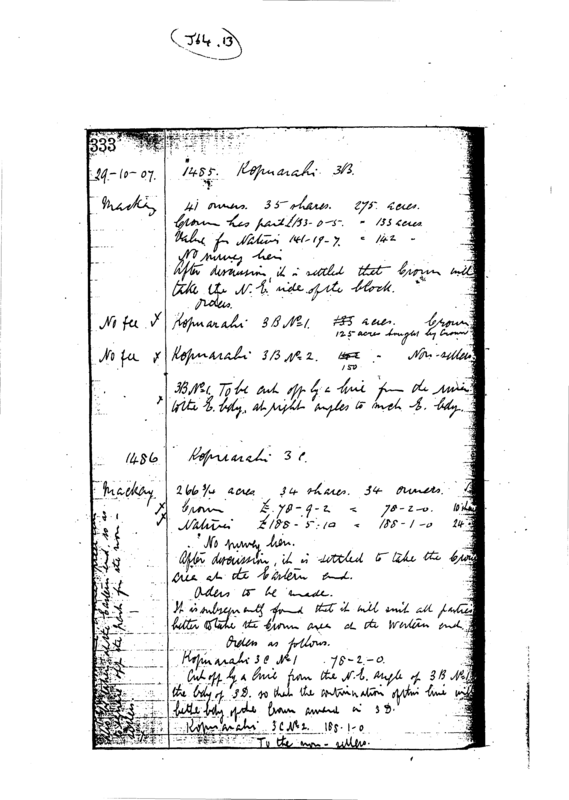 J64.13
333
29-10-07. 1485. Kopuarahi 3B.
Mackay 41 owners. 35 shares. 275 acres.
Crown has paid £133-0-5. = 133 acres
Value for Natives 141-19-7. = 142 -
No survey lien
After discussion it is settled that Crown will
take the N.E. side of the block.
Orders.
No fee x Kopuarahi 3B No 1. 133 acres. Crown
125 acres bought by Crown
No fee x Kopuarahi 3B No 2. - Non-sellers
150
3B No 1. To be cut off by a line from the river
x to the E. bdy. at right angles to such E. bdy.
1486 Kopuarahi 3C.
Mackay. 266 3/4 acres 34 shares. 34 owners.
x Crown £78-9-2 = 78-2-0.
x Natives £188-5-10 = 188-1-0 24
No survey lien.
After discussion, it is settled to take the Crown
area at the Eastern end.
Orders to be made.
It is subsequently found that it will suit all parties
better to take the Crown area at the Western end
Orders as follows.
Kopuarahi 3C No 1 78-2-0.
Cut off by a line from the N.E. angle of 3B No 1
the bdy of 3D. so that the continuation of this line will
be the bdy of the Crown award in 3D.
Kopuarahi 3C No 2. 188-1-0
To the non-sellers.
the Eastern end, so as
to cut off the pah for the non-
sellers